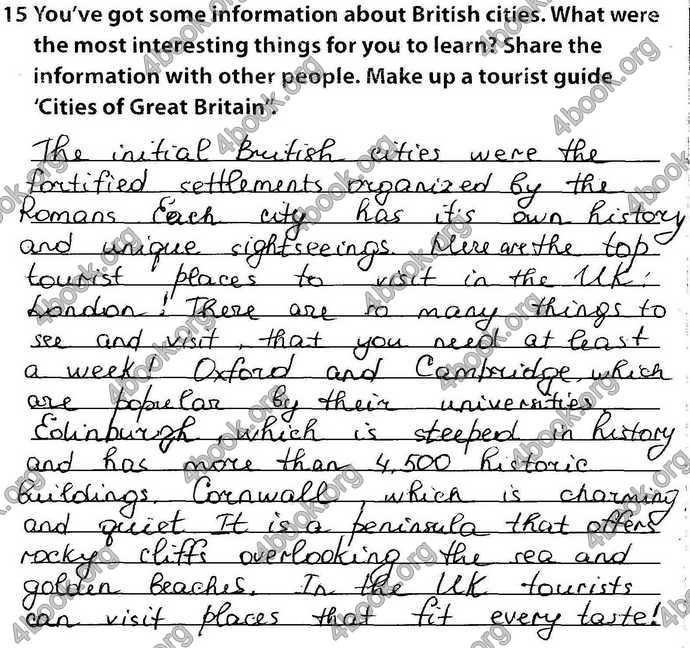 15 You've got some information about British cities. What were
the most interesting things for you to learn? Share the
information with other people. Make up a tourist guide
'Cities of Great Britain".
The initial British cities were the
fortified settlements organized by the
Romans Each city has it's own history
and unique sightseeings. Here are the top
tourist places to visit in the UK:
London! There are so many things to
see and visit, that you need at least
a week! Oxford and Cambridge, which
are popular by their universities
Edinburgh, which is steeped in history
and has more than 4,500 historic
buildings. Cornwall, which is charming
and quiet It is a peninsula that offers
rocky cliffs overlooking the sea and
golden beaches. In the UK tourists
can visit places that fit every taste!
4book.org